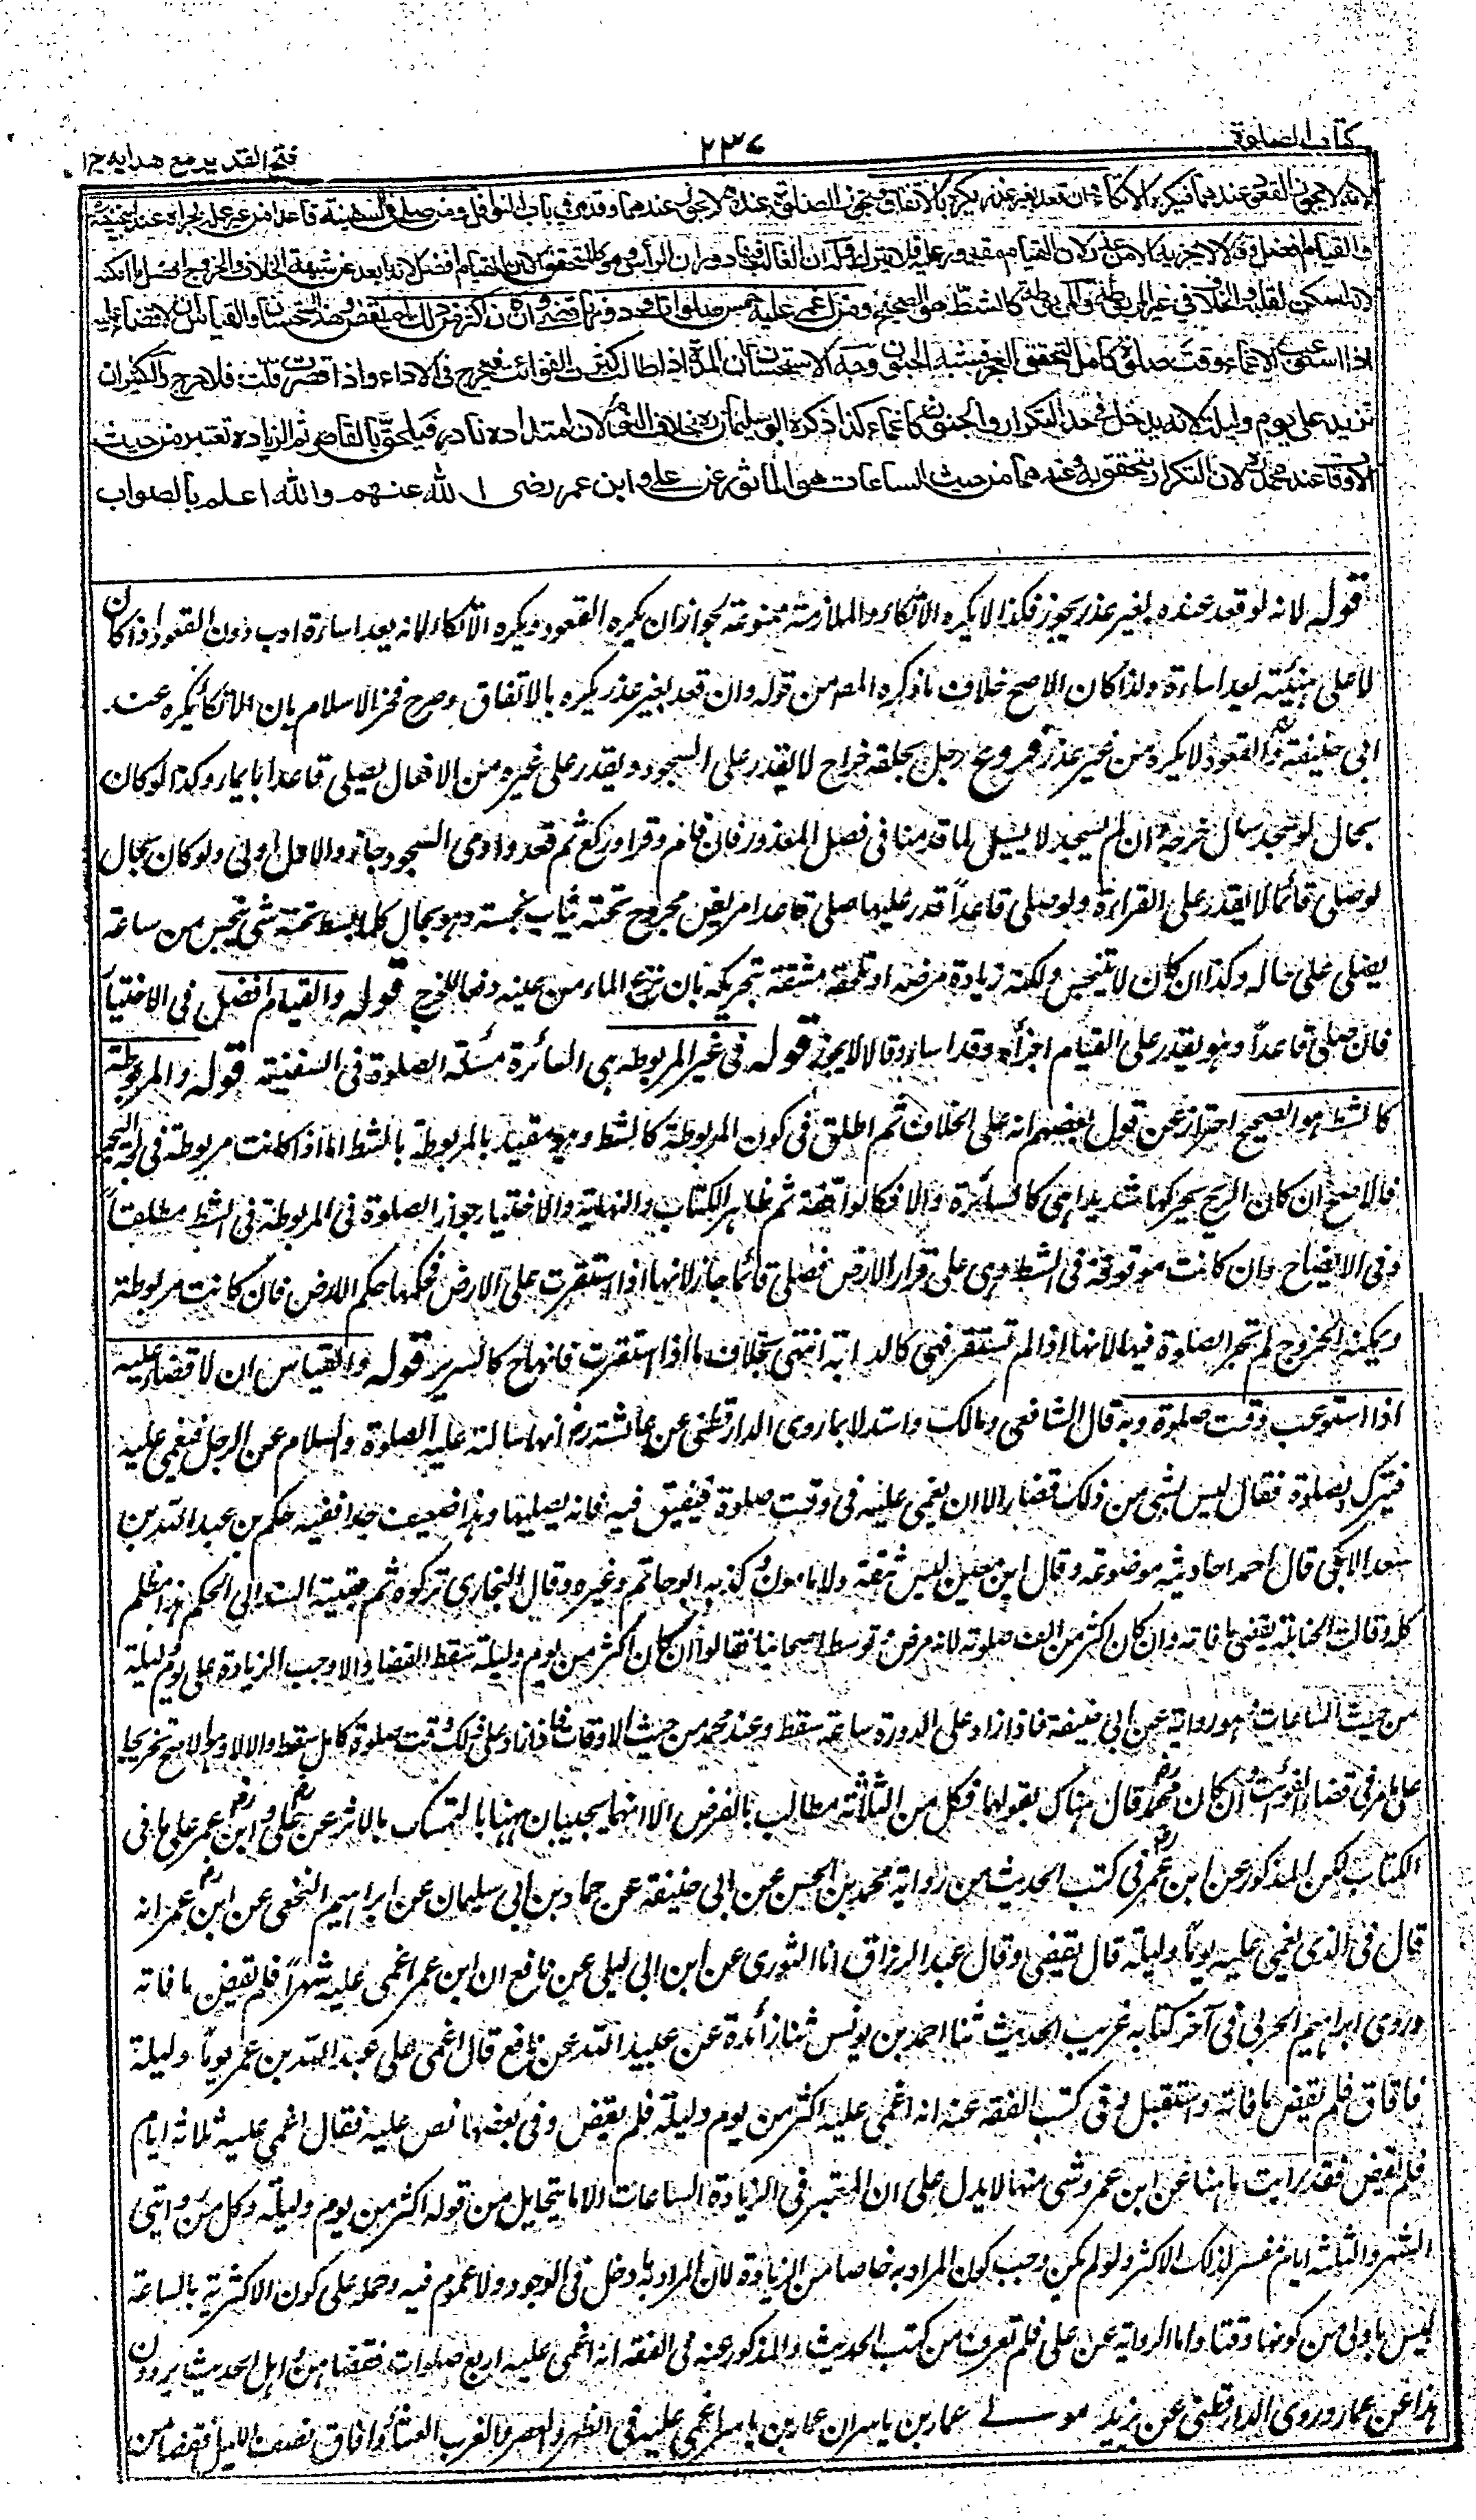 كتاب الصلوة
٢٣٧
فتح القدير مع هدايه ج١
لانه لا يجوز القعود عندهما فيكره الاتكاء وان قعد بغير عذر يكره بالاتفاق وتجوز الصلوة عنده ولا تجوز عندهما وقد مر في باب النوافل ومن صلى في السفينة قاعدا من غير علة اجزاه عند ابي حنيفة
والقيام افضل وقالا لا يجزيه الا من عذر لان القيام مقدور عليه فلا يترك وله ان الغالب فيها دوران الرأس وهو كالمتحقق الا ان القيام افضل لانه ابعد عن شبهة الخلاف والخروج افضل ما امكنه
لانه اسكن لقلبه والخلاف في غير المربوطة والمربوطة كالشط هو الصحيح ومن اغمي عليه خمس صلوات او دونها قضى وان كان اكثر من ذلك لم يقض وهذا استحسان والقياس ان لا قضاء عليه
اذا استوعب الاغماء وقت صلوة كامل لتحقق العجز فيشبه الجنون وجه الاستحسان ان المدة اذا طالت كثرت الفوائت فيحرج في الاداء واذا قصرت قلت فلا حرج والكثير ان
تزيد على يوم وليلة لانه يدخل في حد التكرار والجنون كالاغماء كذا ذكره ابو سليمان بخلاف النوم لان امتداده نادر فيلحق بالقاصر ثم الزيادة تعتبر من حيث
الاوقات عند محمد لان التكرار يتحقق به وعندهما من حيث الساعات هو الماثور عن علي وابن عمر رضى الله عنهم والله اعلم بالصواب
قوله لانه لو قعد عنده بغير عذر يجوز فكذا لا يكره الاتكاء والملازمة ممنوعة لجواز ان يكره القعود ويكره الاتكاء لانه يعد اساءة ادب دون القعود اذا كان
لا على هيئته يعد اساءة ولذا كان الاصح خلاف ما ذكره المص من قوله وان قعد بغير عذر يكره بالاتفاق وصرح فخر الاسلام بان الاتكاء يكره عند
ابي حنيفة والقعود لا يكره من غير عذر فروع رجل بحلقه خراج لا يقدر على السجود ويقدر على غيره من الافعال يصلى قاعدا بايماء وكذا لو كان
بحال لو سجد سال جرحه وان لم يسجد لا يسيل لما قدمنا في فصل المعذور فان قام وقرا وركع ثم قعد واومى للسجود جاز والاول اولى ولو كان بحال
لو صلى قائما لا يقدر على القراءة ولو صلى قاعداً قدر عليها صلى قاعدا مريض مجروح تحته ثياب نجسة وهو بحال كلما بسط تحته شى تنجس من ساعته
يصلى على حاله وكذا ان كان لا يتنجس ولكنه زيادة مرضه او تلحقه مشقة بتحريكه بان نزع الماء من عينه دفعا للحرج قوله والقيام افضل في الاختيار
فان صلى قاعداً وهو يقدر على القيام اجزأه وقد اساء وقالا لا يجوز قوله في غير المربوطة هى السائرة مسئلة الصلوة في السفينة قوله والمربوطة
كالشط هو الصحيح احتراز عن قول بعضهم انه على الخلاف ثم اطلق في كون المربوطة كالشط وهو مقيد بالمربوطة بالشط اما اذا كانت مربوطة في لجة البحر
فالاصح ان كان الريح يحركها شديدا هى كالسائرة والا فكالواقفة ثم ظاهر الكتاب والنهاية والاختيار جواز الصلوة في المربوطة في الشط مطلقاً
وفي الايضاح وان كانت موقوفة في الشط وهى على قرار الارض فصلى قائما جاز لانها اذا استقرت على الارض فحكمها حكم الارض فان كانت مربوطة
ويمكنه الخروج لم تجز الصلوة فيها لانها اذا لم تستقر فهى كالدابة انتهى بخلاف ما اذا استقرت فانها ح كالسرير قوله والقياس ان لا قضاء عليه
اذا استوعب وقت صلوة وبه قال الشافعى ومالك واستدلا بما روى الدارقطنى عن عائشة رض انها سالته عليه الصلوة والسلام عن الرجل يغمى عليه
فيترك الصلوة فقال ليس لشى من ذلك قضاء الا ان يغمى عليه في وقت صلوة فيفيق فيه فانه يصليها وهذا ضعيف جدا ففيه حكم بن عبد الله بن
سعد الايلى قال احمد احاديثه موضوعة وقال ابن معين ليس بثقة ولا مامون وكذبه ابو حاتم وغيره وقال البخارى تركوه ثم بقية السند الى الحكم هذا مظلم
كله وقالت الحنابلة يقضى ما فاته وان كان اكثر من الف صلوة لانه مرض وتوسط اصحابنا فقالوا ان كان اكثر من يوم وليلة سقط القضاء والا وجب الزيادة على يوم وليلة
من حيث الساعات وهو رواية عن ابى حنيفة فاذا زاد على الدورة ساعة سقط وعند محمد من حيث الاوقات فاذا زاد على ذلك وقت صلوة كامل سقط والا لا وهو الاصح تخريجا
على ما مر في قضاء الفوائت وان كان محمد قال هناك بقولهما فكل من الثلاثة مطالب بالفرض الا انهما يجيبان ههنا بالتمسك بالاثر عن على وابن عمر على ما في
الكتاب لكن المذكور عن ابن عمر في كتب الحديث من رواية محمد بن الحسن عن ابى حنيفة عن حماد بن ابى سليمان عن ابراهيم النخعى عن ابن عمر انه
قال فى الذى يغمى عليه يوماً وليلة قال يقضى وقال عبد الرزاق انا الثورى عن ابن ابى ليلى عن نافع ان ابن عمر اغمى عليه شهراً فلم يقض ما فاته
وروى ابراهيم الحربى فى آخر كتابه غريب الحديث ثنا احمد بن يونس ثنا زائدة عن عبيد الله عن نافع قال اغمى على عبد الله بن عمر يوماً وليلة
فافاق فلم يقض ما فاته واستقبل وفى كتب الفقه عنه انه اغمى عليه اكثر من يوم وليلة فلم يقض وفى بعضها نص عليه فقال اغمى عليه ثلاثة ايام
فلم يقض فقد رايت ما هنا عن ابن عمر وشى منها لا يدل على ان المعتبر فى الزيادة الساعات الا ما يتخايل من قوله اكثر من يوم وليلة وكل من روايتى
الشهر والثلثة ايام مفسر لذلك الاكثر ولو لم يكن وجب كون المراد به خاصا من الزيادة لان المراد به ما دخل فى الوجود ولا عموم فيه وحمله على كون الاكثرية بالساعة
ليس باولى من كونها وقتا واما الرواية عن على فلم تعرف من كتب الحديث والمذكور عنه فى الفقه انه اغمى عليه اربع صلوات فقضاهن واهل الحديث يروون
هذا عن عمار وروى الدارقطنى عن يزيد مولے عمار بن ياسر ان عمار بن ياسر اغمى عليه فى الظهر والعصر والمغرب والعشاء وافاق نصف الليل فقضاهن